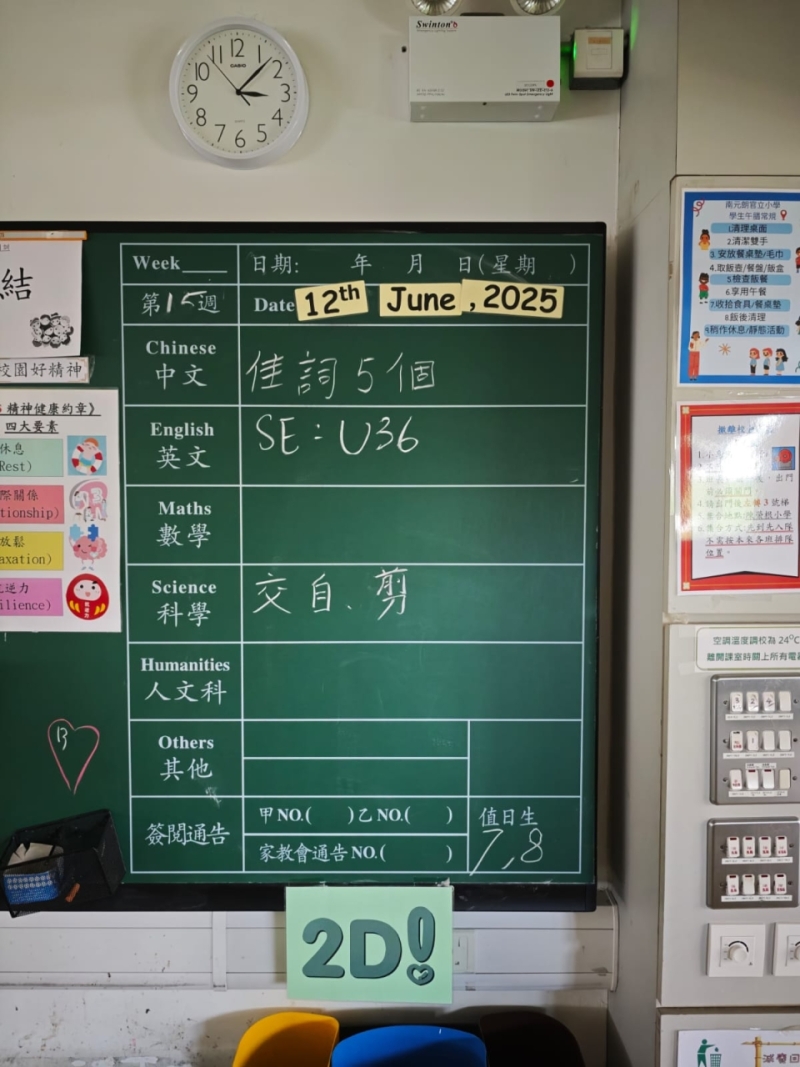 12
11
1
10
2
9
3
8
4
7
5
6
CASIO
QUARTZ
Swinton
結
校園好精神
精神健康約章》
四大要素
休息
Rest)
際關係
tionship)
放鬆
axation)
逆力
ilience)
Week____ 日期: 年 月 日(星期 )
第15週 Date 12th June, 2025
Chinese
中文 佳詞5個
English
英文 SE:U36
Maths
數學
Science
科學 交自、剪
Humanities
人文科
Others
其他
簽閱通告 甲NO.( )乙NO.( )
家教會通告NO.( )
值日生
7,8
2D!
南元朗官立小學
學生午國常規
1.清理桌面
2.清潔雙手
3.安放餐桌墊/毛巾
4.取飯壺/餐盤/飯盒
5.檢查飯餐
6.享用午餐
7.收拾食具/餐桌墊
8.飯後清理
9.稍作休息/靜態活動
空調溫度調校為 24°C
離開課室時關上所有電